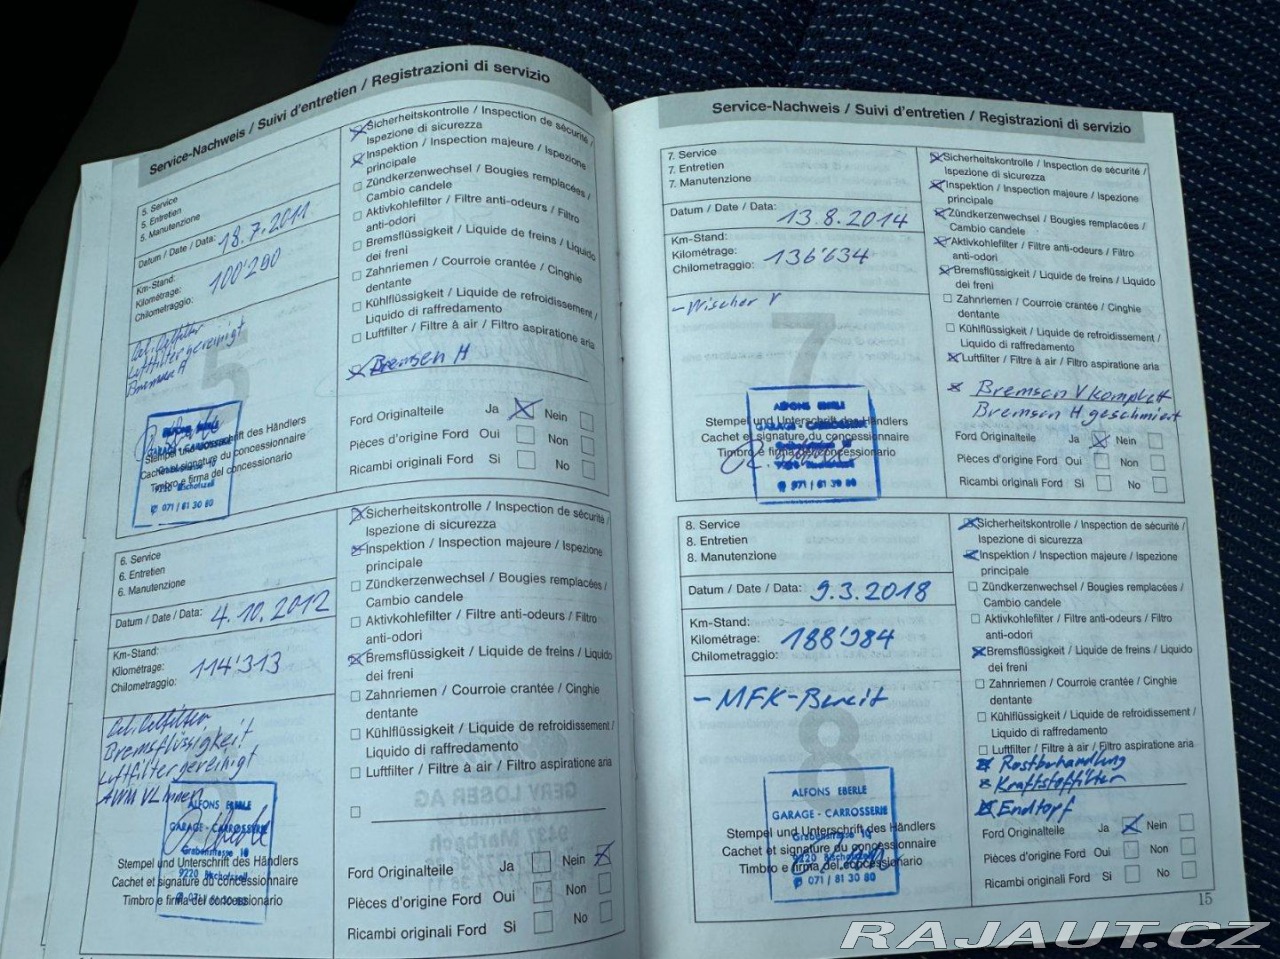 Service-Nachweis / Suivi d'entretien / Registrazioni di servizio
5. Service
5. Entretien
5. Manutenzione
Datum / Date / Data: 18.7.2011
Km-Stand:
Kilométrage: 100'290
Chilometraggio:
Oel. Oelfilter
Luftfilter gereinigt
Bremsen H
5
ALFONS EBERLE
GARAGE - CARROSSERIE
Stempel und Unterschrift des Händlers
Cachet et signature du concessionnaire
Timbro e firma del concessionario
9220 Bischofszell
✆ 071 / 81 30 80
Sicherheitskontrolle / Inspection de sécurité /
Ispezione di sicurezza
Inspektion / Inspection majeure / Ispezione
principale
Zündkerzenwechsel / Bougies remplacées /
Cambio candele
Aktivkohlefilter / Filtre anti-odeurs / Filtro
anti-odori
Bremsflüssigkeit / Liquide de freins / Liquido
dei freni
Zahnriemen / Courroie crantée / Cinghie
dentante
Kühlflüssigkeit / Liquide de refroidissement /
Liquido di raffredamento
Luftfilter / Filtre à air / Filtro aspiratione aria
Bremsen H
Ford Originalteile Ja Nein
Pièces d'origine Ford Oui Non
Ricambi originali Ford Si No
6. Service
6. Entretien
6. Manutenzione
Datum / Date / Data: 4.10.2012
Km-Stand:
Kilométrage: 114'313
Chilometraggio:
Oel. Oelfilter
Bremsflüssigkeit
Luftfilter gereinigt
ALFONS EBERLE
GARAGE - CARROSSERIE
Grabenstrasse 10
Stempel und Unterschrift des Händlers
9220 Bischofszell
Cachet et signature du concessionnaire
Timbro e firma del concessionario
Sicherheitskontrolle / Inspection de sécurité /
Ispezione di sicurezza
Inspektion / Inspection majeure / Ispezione
principale
Zündkerzenwechsel / Bougies remplacées /
Cambio candele
Aktivkohlefilter / Filtre anti-odeurs / Filtro
anti-odori
Bremsflüssigkeit / Liquide de freins / Liquido
dei freni
Zahnriemen / Courroie crantée / Cinghie
dentante
Kühlflüssigkeit / Liquide de refroidissement /
Liquido di raffredamento
Luftfilter / Filtre à air / Filtro aspiratione aria
Ford Originalteile Ja Nein
Pièces d'origine Ford Oui Non
Ricambi originali Ford Si No
Service-Nachweis / Suivi d'entretien / Registrazioni di servizio
7. Service
7. Entretien
7. Manutenzione
Datum / Date / Data: 13.8.2014
Km-Stand:
Kilométrage: 136'634
Chilometraggio:
- Wischer V
7
ALFONS EBERLE
Stempel und Unterschrift des Händlers
GARAGE - CARROSSERIE
Cachet et signature du concessionnaire
Timbro e firma del concessionario
✆ 071 / 81 30 80
Sicherheitskontrolle / Inspection de sécurité /
Ispezione di sicurezza
Inspektion / Inspection majeure / Ispezione
principale
Zündkerzenwechsel / Bougies remplacées /
Cambio candele
Aktivkohlefilter / Filtre anti-odeurs / Filtro
anti-odori
Bremsflüssigkeit / Liquide de freins / Liquido
dei freni
Zahnriemen / Courroie crantée / Cinghie
dentante
Kühlflüssigkeit / Liquide de refroidissement /
Liquido di raffredamento
Luftfilter / Filtre à air / Filtro aspiratione aria
Bremsen V komplett
Bremsen H geschmiert
Ford Originalteile Ja Nein
Pièces d'origine Ford Oui Non
Ricambi originali Ford Si No
8. Service
8. Entretien
8. Manutenzione
Datum / Date / Data: 9.3.2018
Km-Stand:
Kilométrage: 188'984
Chilometraggio:
- MFK-Bereit
8
ALFONS EBERLE
GARAGE - CARROSSERIE
Stempel und Unterschrift des Händlers
Grabenstrasse 10
Cachet et signature du concessionnaire
9220 Bischofszell
Timbro e firma del concessionario
✆ 071 / 81 30 80
Sicherheitskontrolle / Inspection de sécurité /
Ispezione di sicurezza
Inspektion / Inspection majeure / Ispezione
principale
Zündkerzenwechsel / Bougies remplacées /
Cambio candele
Aktivkohlefilter / Filtre anti-odeurs / Filtro
anti-odori
Bremsflüssigkeit / Liquide de freins / Liquido
dei freni
Zahnriemen / Courroie crantée / Cinghie
dentante
Kühlflüssigkeit / Liquide de refroidissement /
Liquido di raffredamento
Luftfilter / Filtre à air / Filtro aspiratione aria
Rostbehandlung
Kraftstoffilter
Endtopf
Ford Originalteile Ja Nein
Pièces d'origine Ford Oui Non
Ricambi originali Ford Si No
15
RAJAUT.CZ